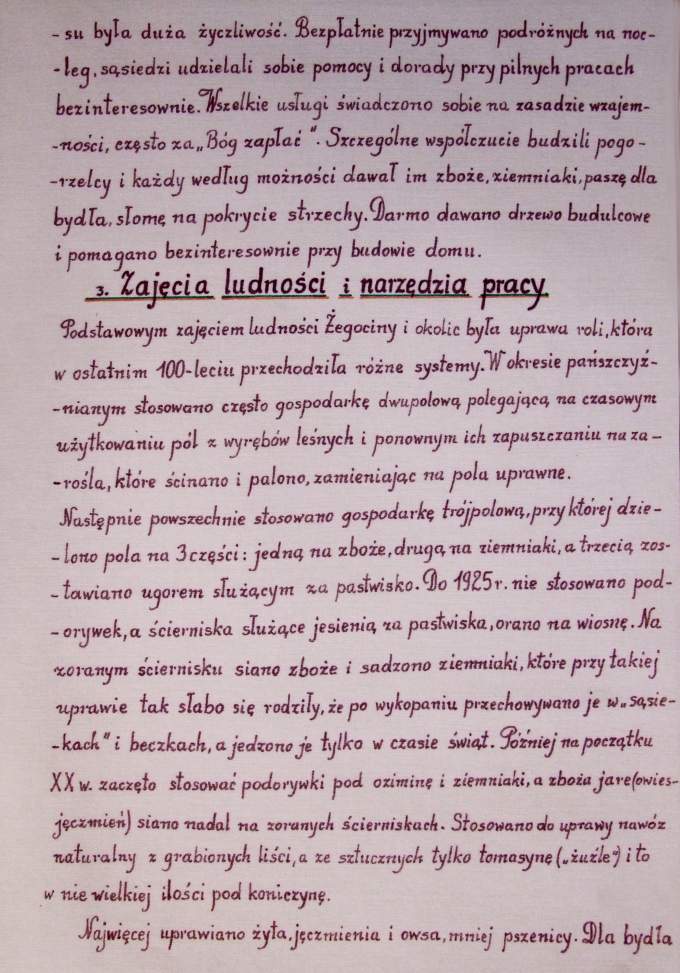 - su była duża życzliwość. Bezpłatnie przyjmywano podróżnych na noc-
-leg, sąsiedzi udzielali sobie pomocy i dorady przy pilnych pracach
bezinteresownie. Wszelkie usługi świadczono sobie na zasadzie wzajem-
-ności, często za „Bóg zapłać". Szczególne współczucie budzili pogo-
-rzelcy i każdy według możności dawał im zboże, ziemniaki, paszę dla
bydła, słomę na pokrycie strzechy. Darmo dawano drzewo budulcowe
i pomagano bezinteresownie przy budowie domu.
3. Zajęcia ludności i narzędzia pracy
Podstawowym zajęciem ludności Żegociny i okolic była uprawa roli, która
w ostatnim 100-leciu przechodziła różne systemy. W okresie pańszczyź-
-nianym stosowano często gospodarkę dwupolową polegającą na czasowym
użytkowaniu pól z wyrębów leśnych i ponownym ich zapuszczaniu na za-
-rośla, które ścinano i palono, zamieniając na pola uprawne.
Następnie powszechnie stosowano gospodarkę trójpolową, przy której dzie-
- lono pola na 3 części: jedną na zboże, drugą na ziemniaki, a trzecią zos-
- tawiano ugorem służącym za pastwisko. Do 1925 r. nie stosowano pod-
- orywek, a ścierniska służące jesienią za pastwiska, orano na wiosnę. Na
zoranym ściernisku siano zboże i sadzono ziemniaki, które przy takiej
uprawie tak słabo się rodziły, że po wykopaniu przechowywano je w „sąsie-
-kach" i beczkach, a jedzono je tylko w czasie świąt. Później na początku
XX w. zaczęto stosować podorywki pod oziminę i ziemniaki, a zboża jare (owies-
jęczmień) siano nadal na zoranych ścierniskach. Stosowano do uprawy nawóz
naturalny z grabionych liści, a ze sztucznych tylko tomasynę („żużle") i to
w nie wielkiej ilości pod koniczynę.
Najwięcej uprawiano żyta, jęczmienia i owsa, mniej pszenicy. Dla bydła